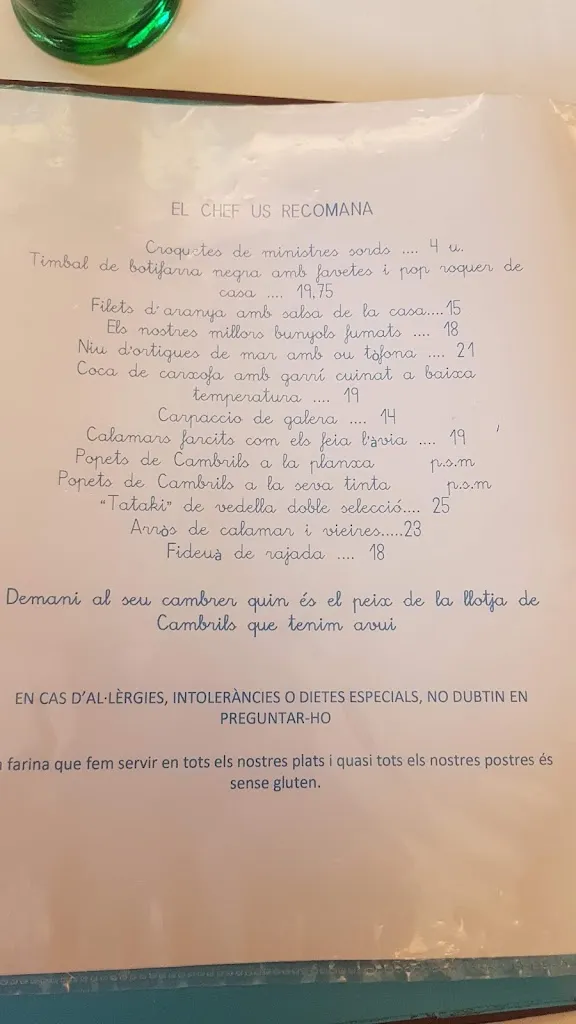 EL CHEF US RECOMANA
Croquetes de ministres sords .... 4 u.
Timbal de botifarra negra amb favetes i pop roquer de
casa .... 19,75
Filets d'aranya amb salsa de la casa....15
Els nostres millors bunyols fumats .... 18
Niu d'ortigues de mar amb ou tòfona .... 21
Coca de carxofa amb garrí cuinat a baixa
temperatura .... 19
Carpaccio de galera .... 14
Calamars farcits com els feia l'àvia .... 19
Popets de Cambrils a la planxa p.s.m
Popets de Cambrils a la seva tinta p.s.m
"Tataki" de vedella doble selecció.... 25
Arròs de calamar i vieires.....23
Fideuà de rajada .... 18
Demani al seu cambrer quin és el peix de la llotja de
Cambrils que tenim avui
EN CAS D'AL·LÈRGIES, INTOLERÀNCIES O DIETES ESPECIALS, NO DUBTIN EN
PREGUNTAR-HO
farina que fem servir en tots els nostres plats i quasi tots els nostres postres és
sense gluten.